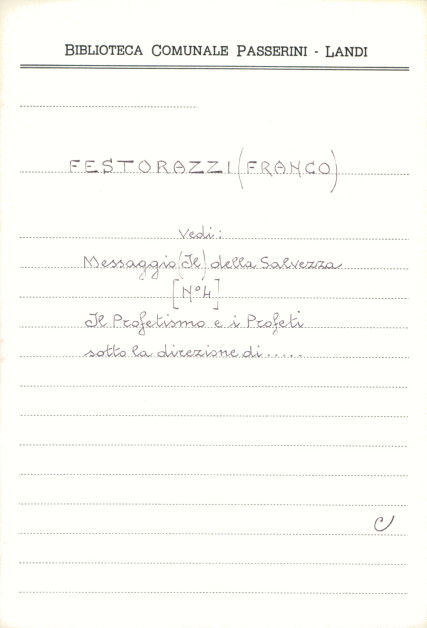 BIBLIOTECA COMUNALE PASSERINI - LANDI
FESTORAZZI (FRANCO)
Vedi:
Messaggio (Il) della Salvezza
[N° 4]
Il Profetismo e i Profeti
sotto la direzione di .....